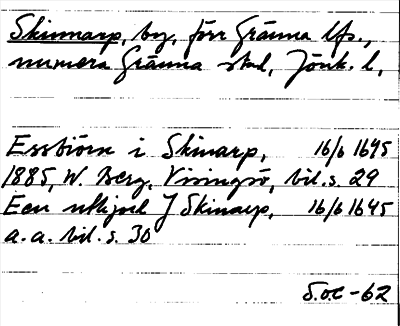 Skinnarp, by, förr Gränna lfs.,
numera Gränna stad, Jönk. l,
Essbiörn i Skinarp, 16/6 1645
1885, W. Berg, Visingsö, bil. s. 29
Een utkjord J Skinarp, 16/6 1645
a. a. bil. s. 30
S.oc -62